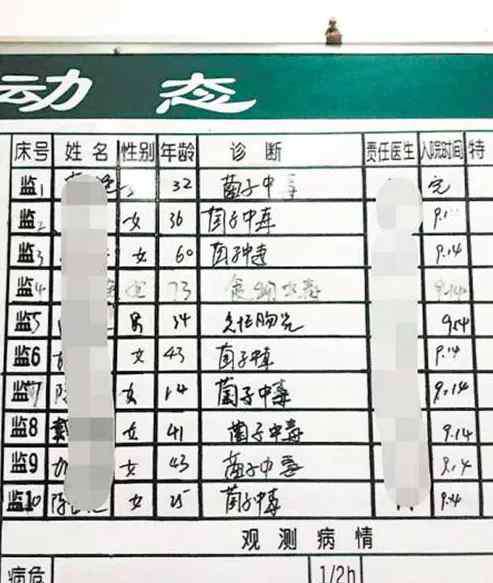 动 态
床号 姓名 性别 年龄 诊断 责任医生 入院时间 特
监1 32 菌子中毒
监2 女 36 菌子中毒
监3 女 60 菌子中毒 9.14
监4 73 9.14
监5 男 34 9.14
监6 女 43 菌子中毒 9.14
监7 陈 女 14 菌子中毒 9.14
监8 女 41 菌子中毒 9.14
监9 女 43 菌子中毒 9.14
监10 陈 女 25 菌子中毒 9.14
观测病情
病危 1/2h